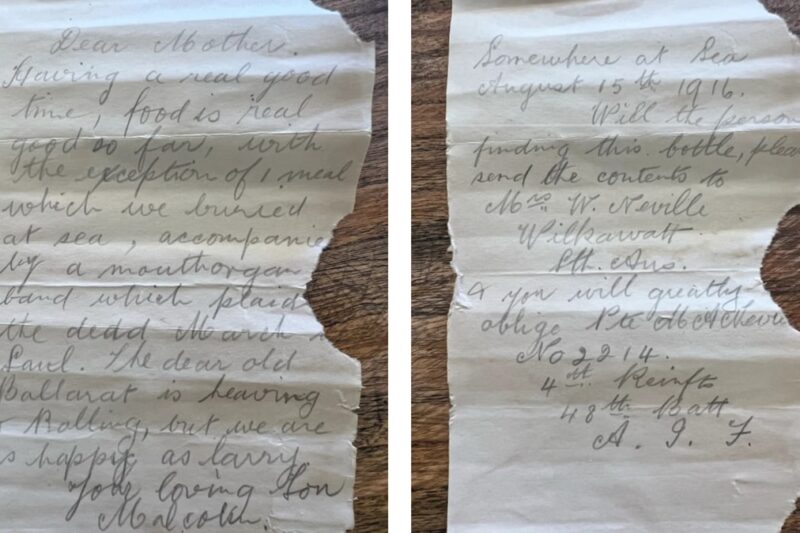 Dear Mother.
Having a real good
time, food is real
good so far, with
the exception of 1 meal
which we buried
at sea, accompanie
by a mouthorgan
band which plaid
the dedd March
Saul. The dear old
Ballarat is heaving
& Rolling, but we are
s happy as larry
your loving Son
Malcolm.
Somewhere at Sea
August 15th 1916.
Will the person
finding this bottle, pleas
send the contents to
Mrs W. Neville
Wilkawatt
Sth. Aus.
& you will greatly
oblige Pte
No 2214.
4th Reinfts
48th Batt
A. I. F.